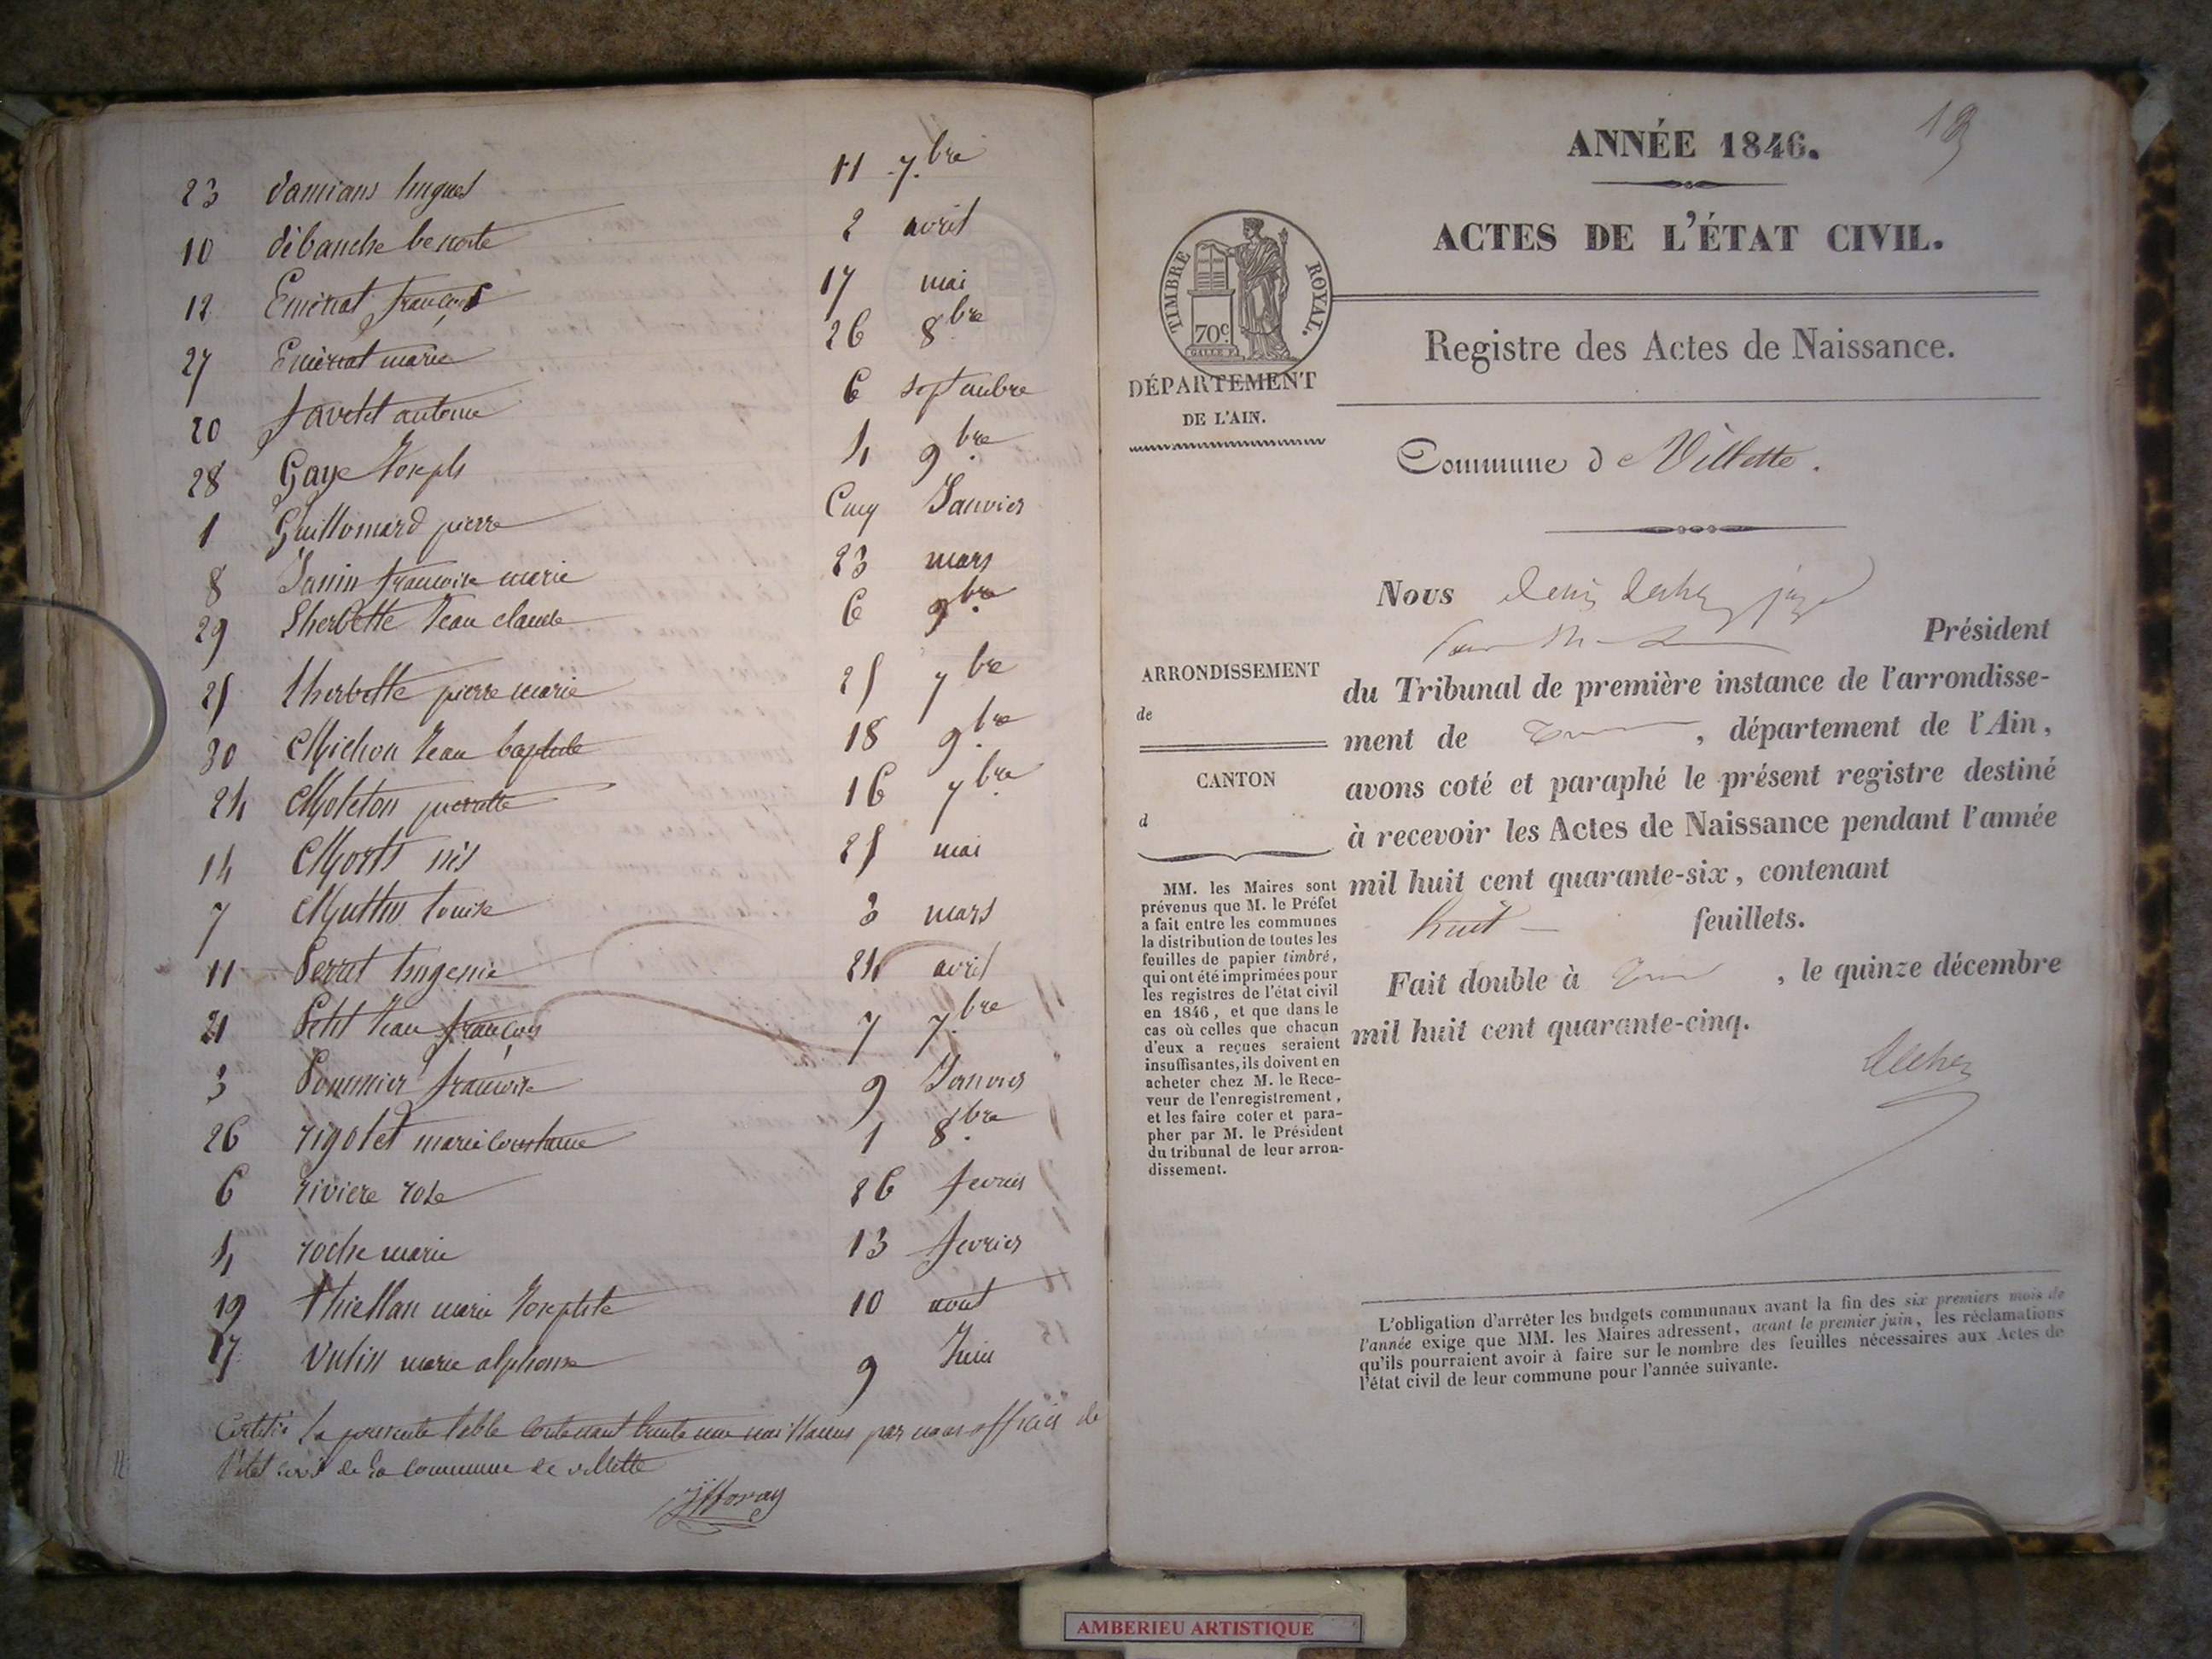 23 damians hugues 11 7.bre
10 débauche benoite 2 avril
12 Emeriat françois 17 mai
27 Emeriat marie 26 8.bre
20 favetet antoine 6 septembre
28 Gaye Joseph 4 9.bre
1 Guillomard pierre Cinq Janvier
8 Janin francoise marie 23 mars
29 Lherbette Jean claude 6 9.bre
25 Lherbette pierre marie 25 7bre
30 Michon Jean baptiste 18 9.bre
24 Moleton pierrette 16 7bre
14 Morts nés 25 mai
7 louise 3 mars
11 Perrat Eugenie 24 avril
21 Petit Jean françois 7 7.bre
3 Pommier francoise 9 Janvier
26 rigolet marie constance 1 8.bre
6 riviere rose 26 fevrier
4 roche marie 13 fevrier
19 thiellan marie Josephte 10 aout
17 vulin marie alphonse 9 Juin
Certifié la presente table contenant trente une naissances par nous officier de
l'état civil de la commune de villette
ANNÉE 1846.
ACTES DE L'ÉTAT CIVIL.
TIMBRE ROYAL.
70c
GALLE F.
Registre des Actes de Naissance.
DÉPARTEMENT
DE L'AIN.
Commune de Villette.
Nous
Président
du Tribunal de première instance de l'arrondisse-
ment de , département de l'Ain,
avons coté et paraphé le présent registre destiné
à recevoir les Actes de Naissance pendant l'année
mil huit cent quarante-six, contenant
huit feuillets.
Fait double à , le quinze décembre
mil huit cent quarante-cinq.
ARRONDISSEMENT
de
CANTON
d
MM. les Maires sont
prévenus que M. le Préfet
a fait entre les communes
la distribution de toutes les
feuilles de papier timbré,
qui ont été imprimées pour
les registres de l'état civil
en 1846, et que dans le
cas où celles que chacun
d'eux a reçues seraient
insuffisantes, ils doivent en
acheter chez M. le Rece-
veur de l'enregistrement,
et les faire coter et para-
pher par M. le Président
du tribunal de leur arron-
dissement.
L'obligation d'arrêter les budgets communaux avant la fin des six premiers mois de
l'année exige que MM. les Maires adressent, avant le premier juin, les réclamations
qu'ils pourraient avoir à faire sur le nombre des feuilles nécessaires aux Actes de
l'état civil de leur commune pour l'année suivante.
AMBERIEU ARTISTIQUE